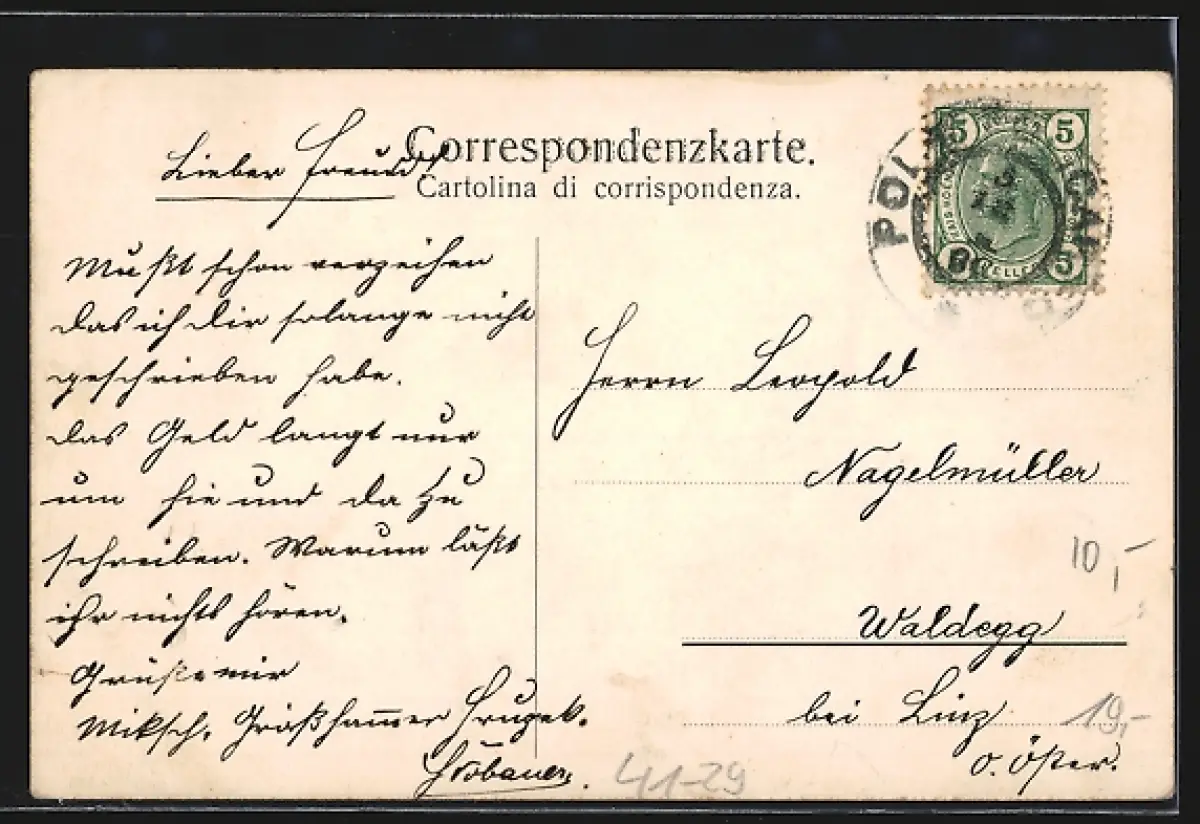 Correspondenzkarte.
Cartolina di corrispondenza.
Lieber Freund!
Mußt schon verzeihen
das ich dir solange nicht
geschrieben habe.
Das Geld langt nur
um hie und da zu
schreiben. Warum läßt
ihr nichts hören.
Grüße mir
Miksch, Großhammer
5 5
5
Herrn Leopold
Nagelmüller
Waldegg
bei Linz
O. Öster.
10,-
19,-
41-29